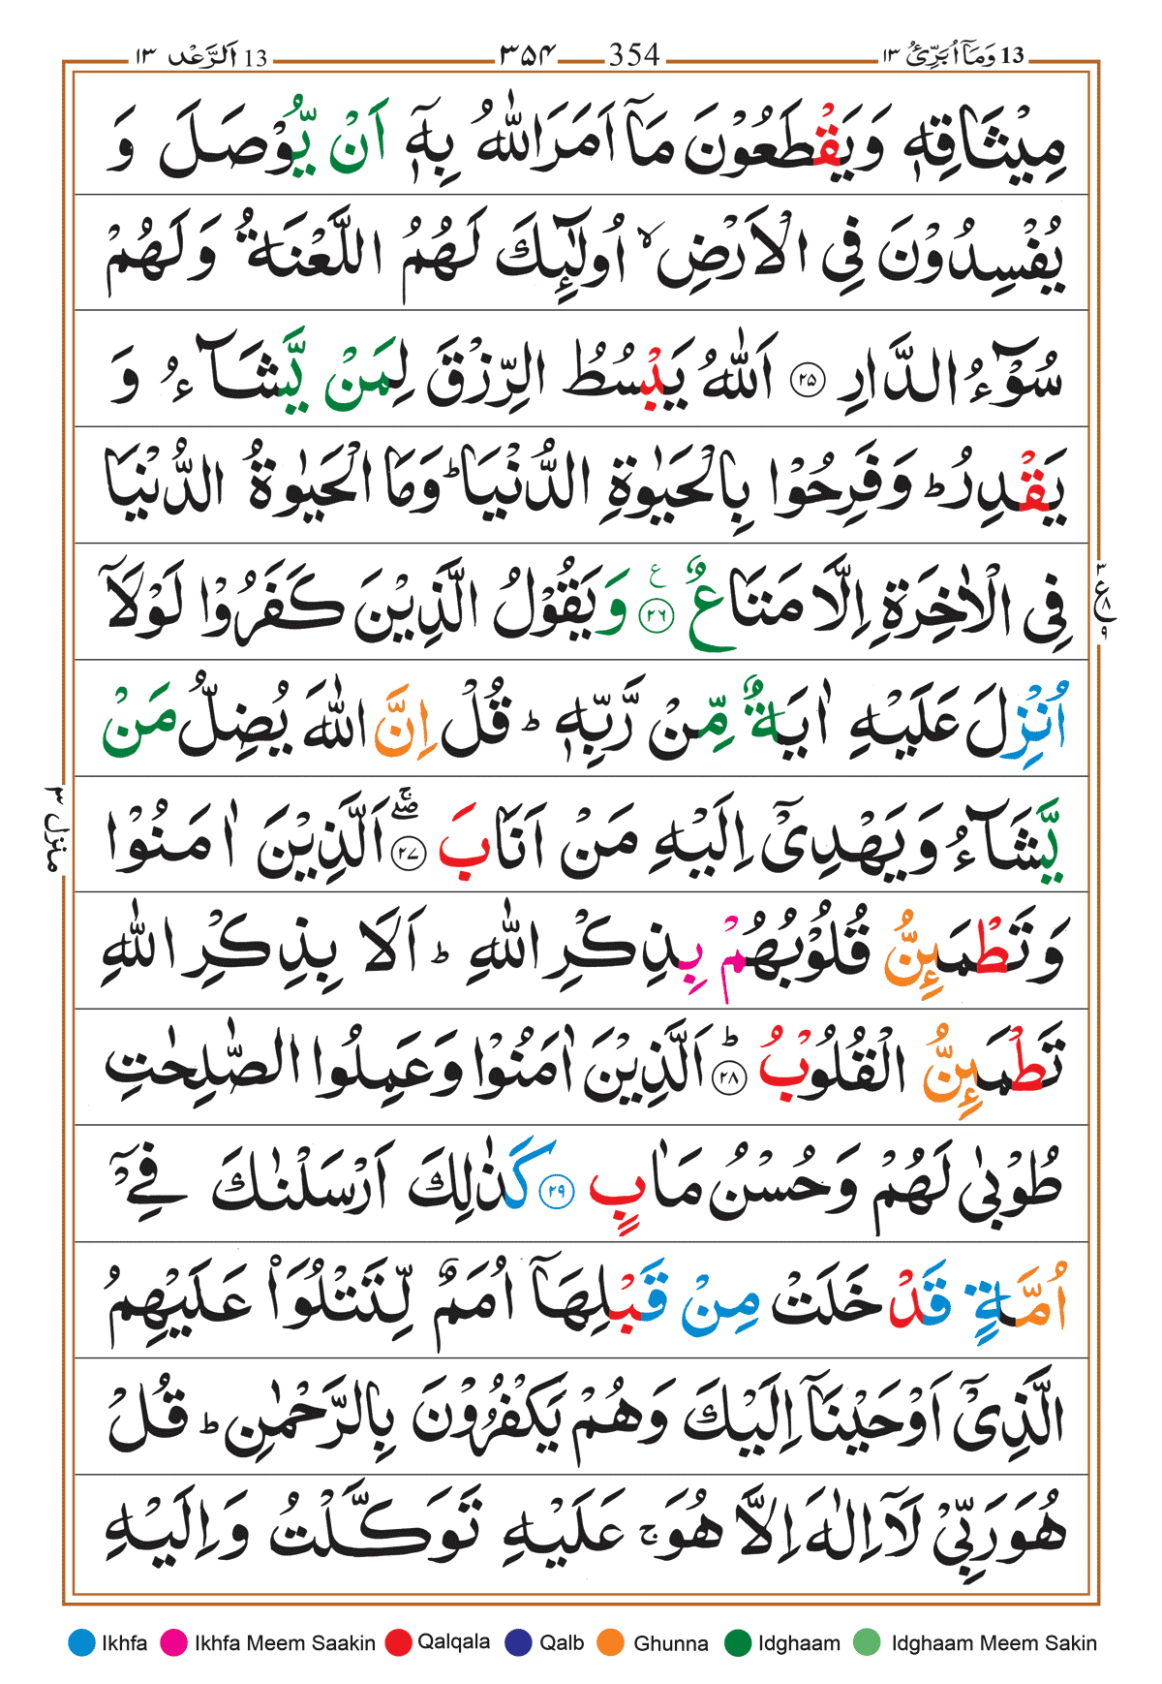 13 اَلرَّعْد ١٣ ٣٥٤ 354 13 وَمَآ اُبَرِّئُ ١٣
مِيْثَاقِهٖ وَيَقْطَعُوْنَ مَآ اَمَرَ اللّٰهُ بِهٖۤ اَنْ يُّوْصَلَ وَ
يُفْسِدُوْنَ فِى الْاَرْضِ ۙ اُولٰٓئِكَ لَهُمُ اللَّعْنَةُ وَلَهُمْ
سُوْٓءُ الدَّارِ ۝۲۵ اَللّٰهُ يَبْسُطُ الرِّزْقَ لِمَنْ يَّشَآءُ وَ
يَقْدِرُ ؕ وَفَرِحُوْا بِالْحَيٰوةِ الدُّنْيَا ؕ وَمَا الْحَيٰوةُ الدُّنْيَا
فِى الْاٰخِرَةِ اِلَّا مَتَاعٌ ۝۲۶ ع وَيَقُوْلُ الَّذِيْنَ كَفَرُوْا لَوْلَآ
ع ۳ ۸ ۹
اُنْزِلَ عَلَيْهِ اٰيَةٌ مِّنْ رَّبِّهٖ ؕ قُلْ اِنَّ اللّٰهَ يُضِلُّ مَنْ
يَّشَآءُ وَيَهْدِىْۤ اِلَيْهِ مَنْ اَنَابَ ۝۲۷ ۖۚ اَلَّذِيْنَ اٰمَنُوْا
منزل ۳
وَتَطْمَئِنُّ قُلُوْبُهُمْ بِذِكْرِ اللّٰهِ ؕ اَلَا بِذِكْرِ اللّٰهِ
تَطْمَئِنُّ الْقُلُوْبُ ۝۲۸ ؕ اَلَّذِيْنَ اٰمَنُوْا وَعَمِلُوا الصّٰلِحٰتِ
طُوْبٰى لَهُمْ وَحُسْنُ مَاٰبٍ ۝۲۹ كَذٰلِكَ اَرْسَلْنٰكَ فِىْۤ
اُمَّةٍ قَدْ خَلَتْ مِنْ قَبْلِهَآ اُمَمٌ لِّتَتْلُوَا۟ عَلَيْهِمُ
الَّذِىْۤ اَوْحَيْنَآ اِلَيْكَ وَهُمْ يَكْفُرُوْنَ بِالرَّحْمٰنِ ؕ قُلْ
هُوَ رَبِّىْ لَآ اِلٰهَ اِلَّا هُوَ ۚ عَلَيْهِ تَوَكَّلْتُ وَاِلَيْهِ
Ikhfa Ikhfa Meem Saakin Qalqala Qalb Ghunna Idghaam Idghaam Meem Sakin